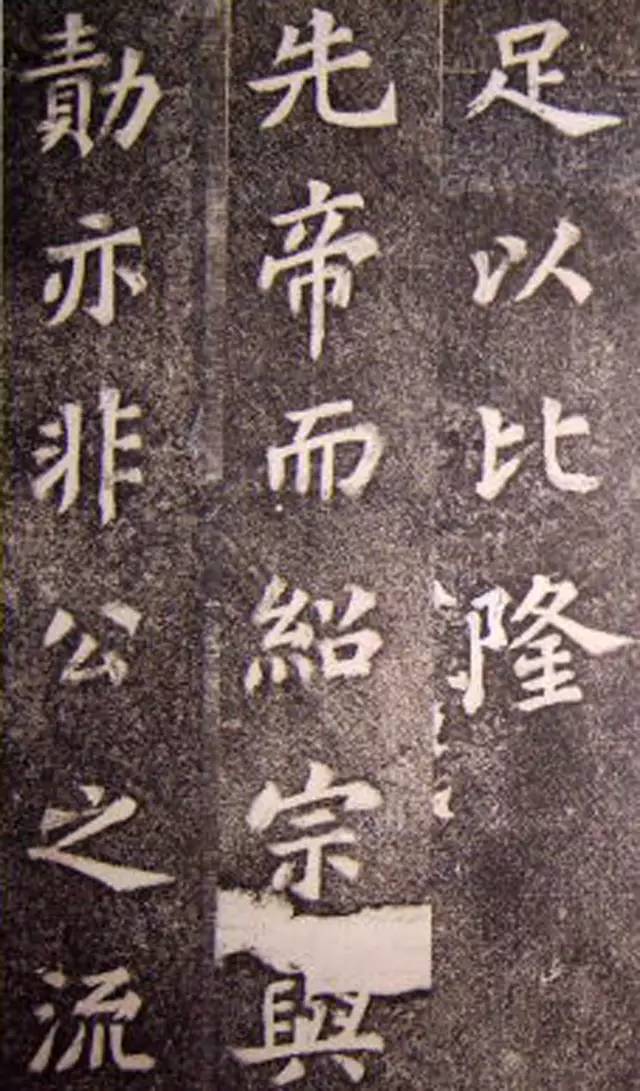 足以比隆
先帝而紹宗與
勣亦非公之流